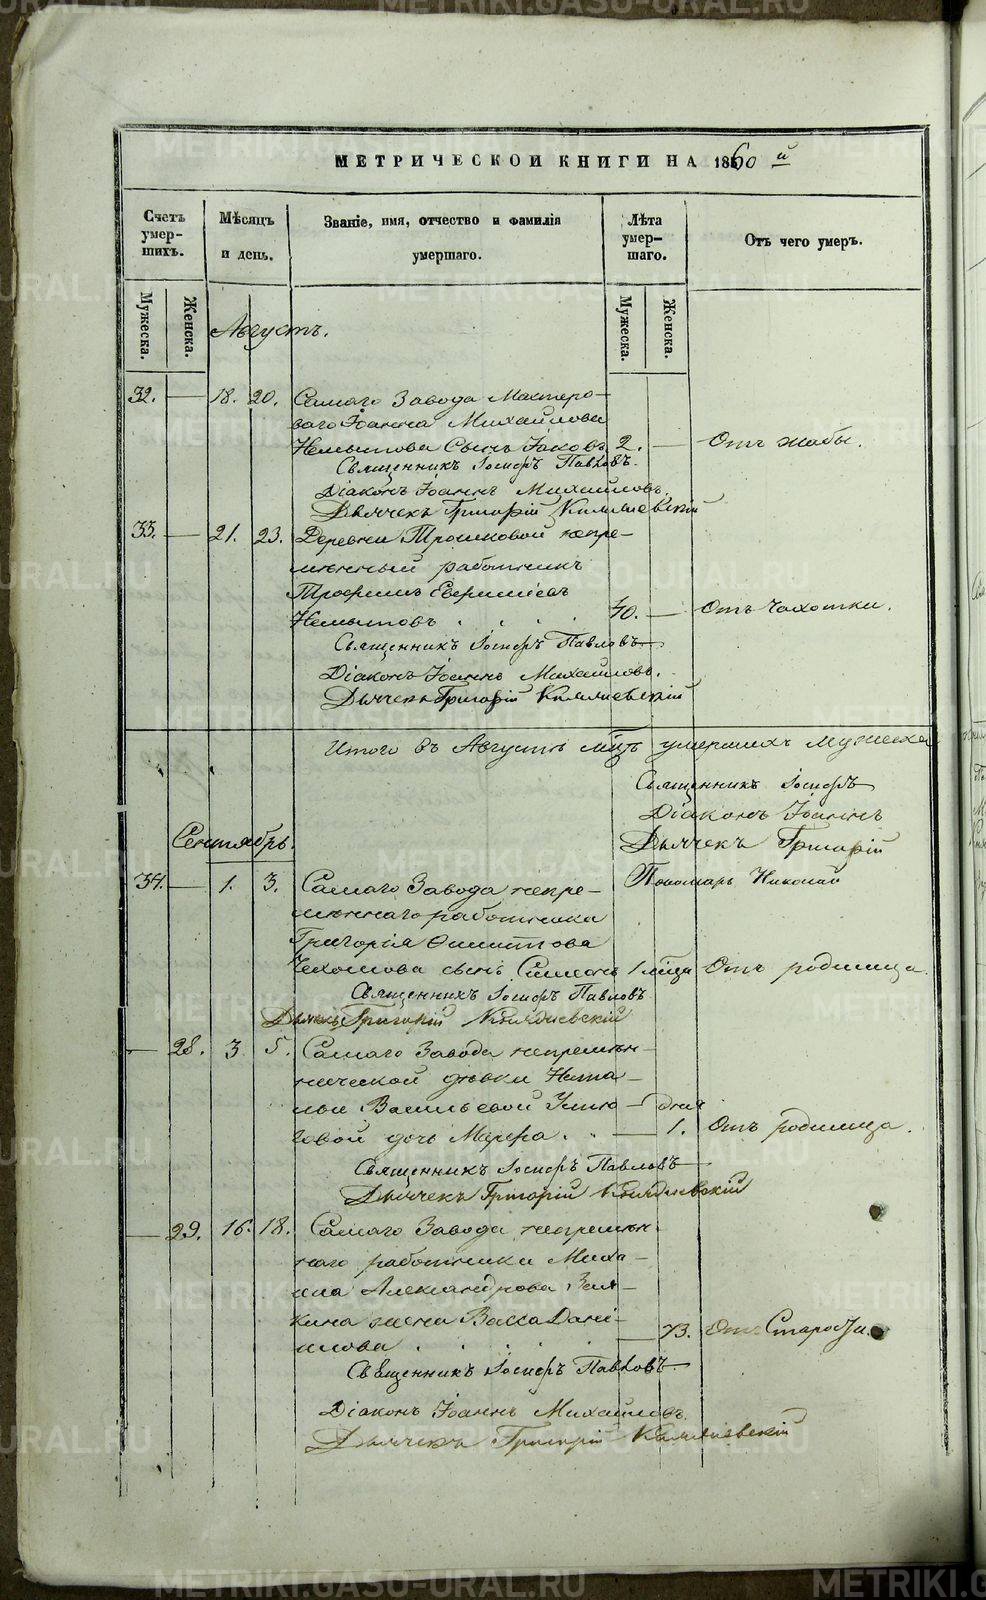 МЕТРИЧЕСКОЙ КНИГИ НА 1860 й
Счетъ умер-шихъ.
Мѣсяцъ и день.
Званіе, имя, отчество и фамилія умершаго.
Лѣта умер-шаго.
Отъ чего умеръ.
Мужеска.
Женска.
Мужеска.
Женска.
Августъ.
32. — 18. 20. Самаго Завода Мастеро-
ваго Іоанна Михайлова
сынъ Іаковъ 2. — Отъ жабы.
Священникъ Іосифъ Павловъ.
Діаконъ Іоаннъ Михайловъ.
Дьячекъ Григорій
33. — 21. 23. Деревни Трошковой непре-
мѣнный работникъ
Трофимъ
40. — Отъ Чахотки.
Священникъ Іосифъ Павловъ
Діаконъ Іоаннъ Михайловъ.
Дьячекъ Григорій
Итого въ Августѣ мцѣ умершихъ мужеска
Священникъ Іосифъ
Діаконъ Іоаннъ
Дьячекъ Григорій
Пономарь Николай
Сентябрь.
34. — 1. 3. Самаго Завода непре-
мѣннаго работника
Григорія
сынъ Симеонъ 1 мца Отъ родимца.
Священникъ Іосифъ Павловъ
Дьячекъ Григорій
— 28. 3 5. Самаго Завода непремѣн-
нической дѣвки Ната-
льи Васильевой
дня
говой дочь Марѳа. — 1. Отъ родимца.
Священникъ Іосифъ Павловъ
Дьячекъ Григорій
— 29. 16. 18. Самаго Завода непремѣн-
наго работника Миха-
ила Александрова Зыя-
кина жена Васса Дані-
илова — 73. Отъ Старости.
Священникъ Іосифъ Павловъ
Діаконъ Іоаннъ Михайловъ.
Дьячекъ Григорій
METRIKI.GASO-URAL.RU